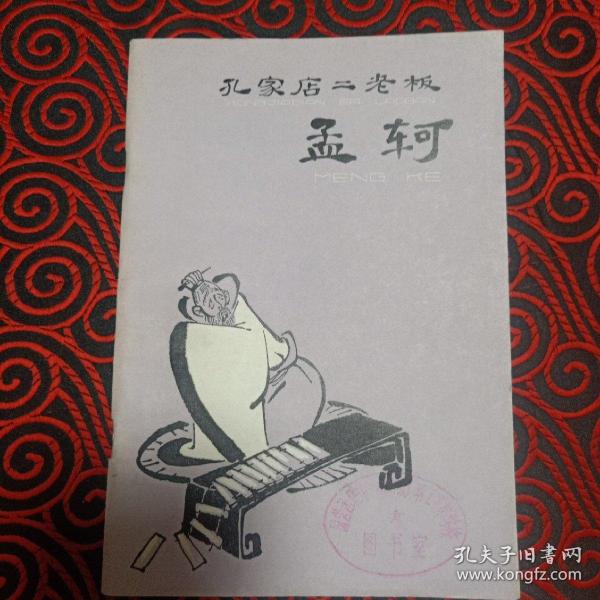 孔家店二老板
KONGJIADIAN ER LAOBAN
孟轲
MENG KE
图书室
孔夫子旧书网
www.kongfz.com